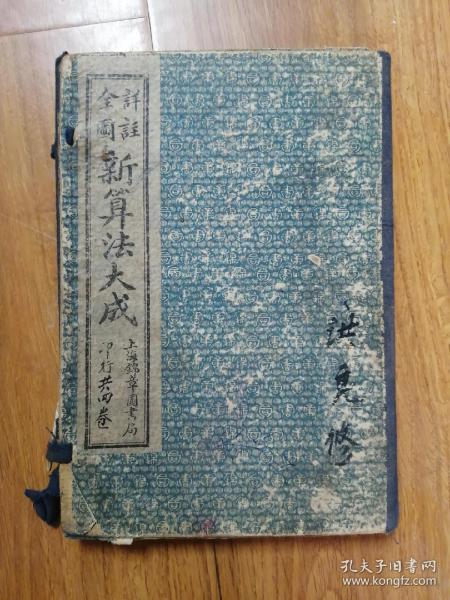 詳註
全圖
新算法大成
上海錦章圖書局
印行共四卷
洪
修
孔夫子旧书网
www.kongfz.com